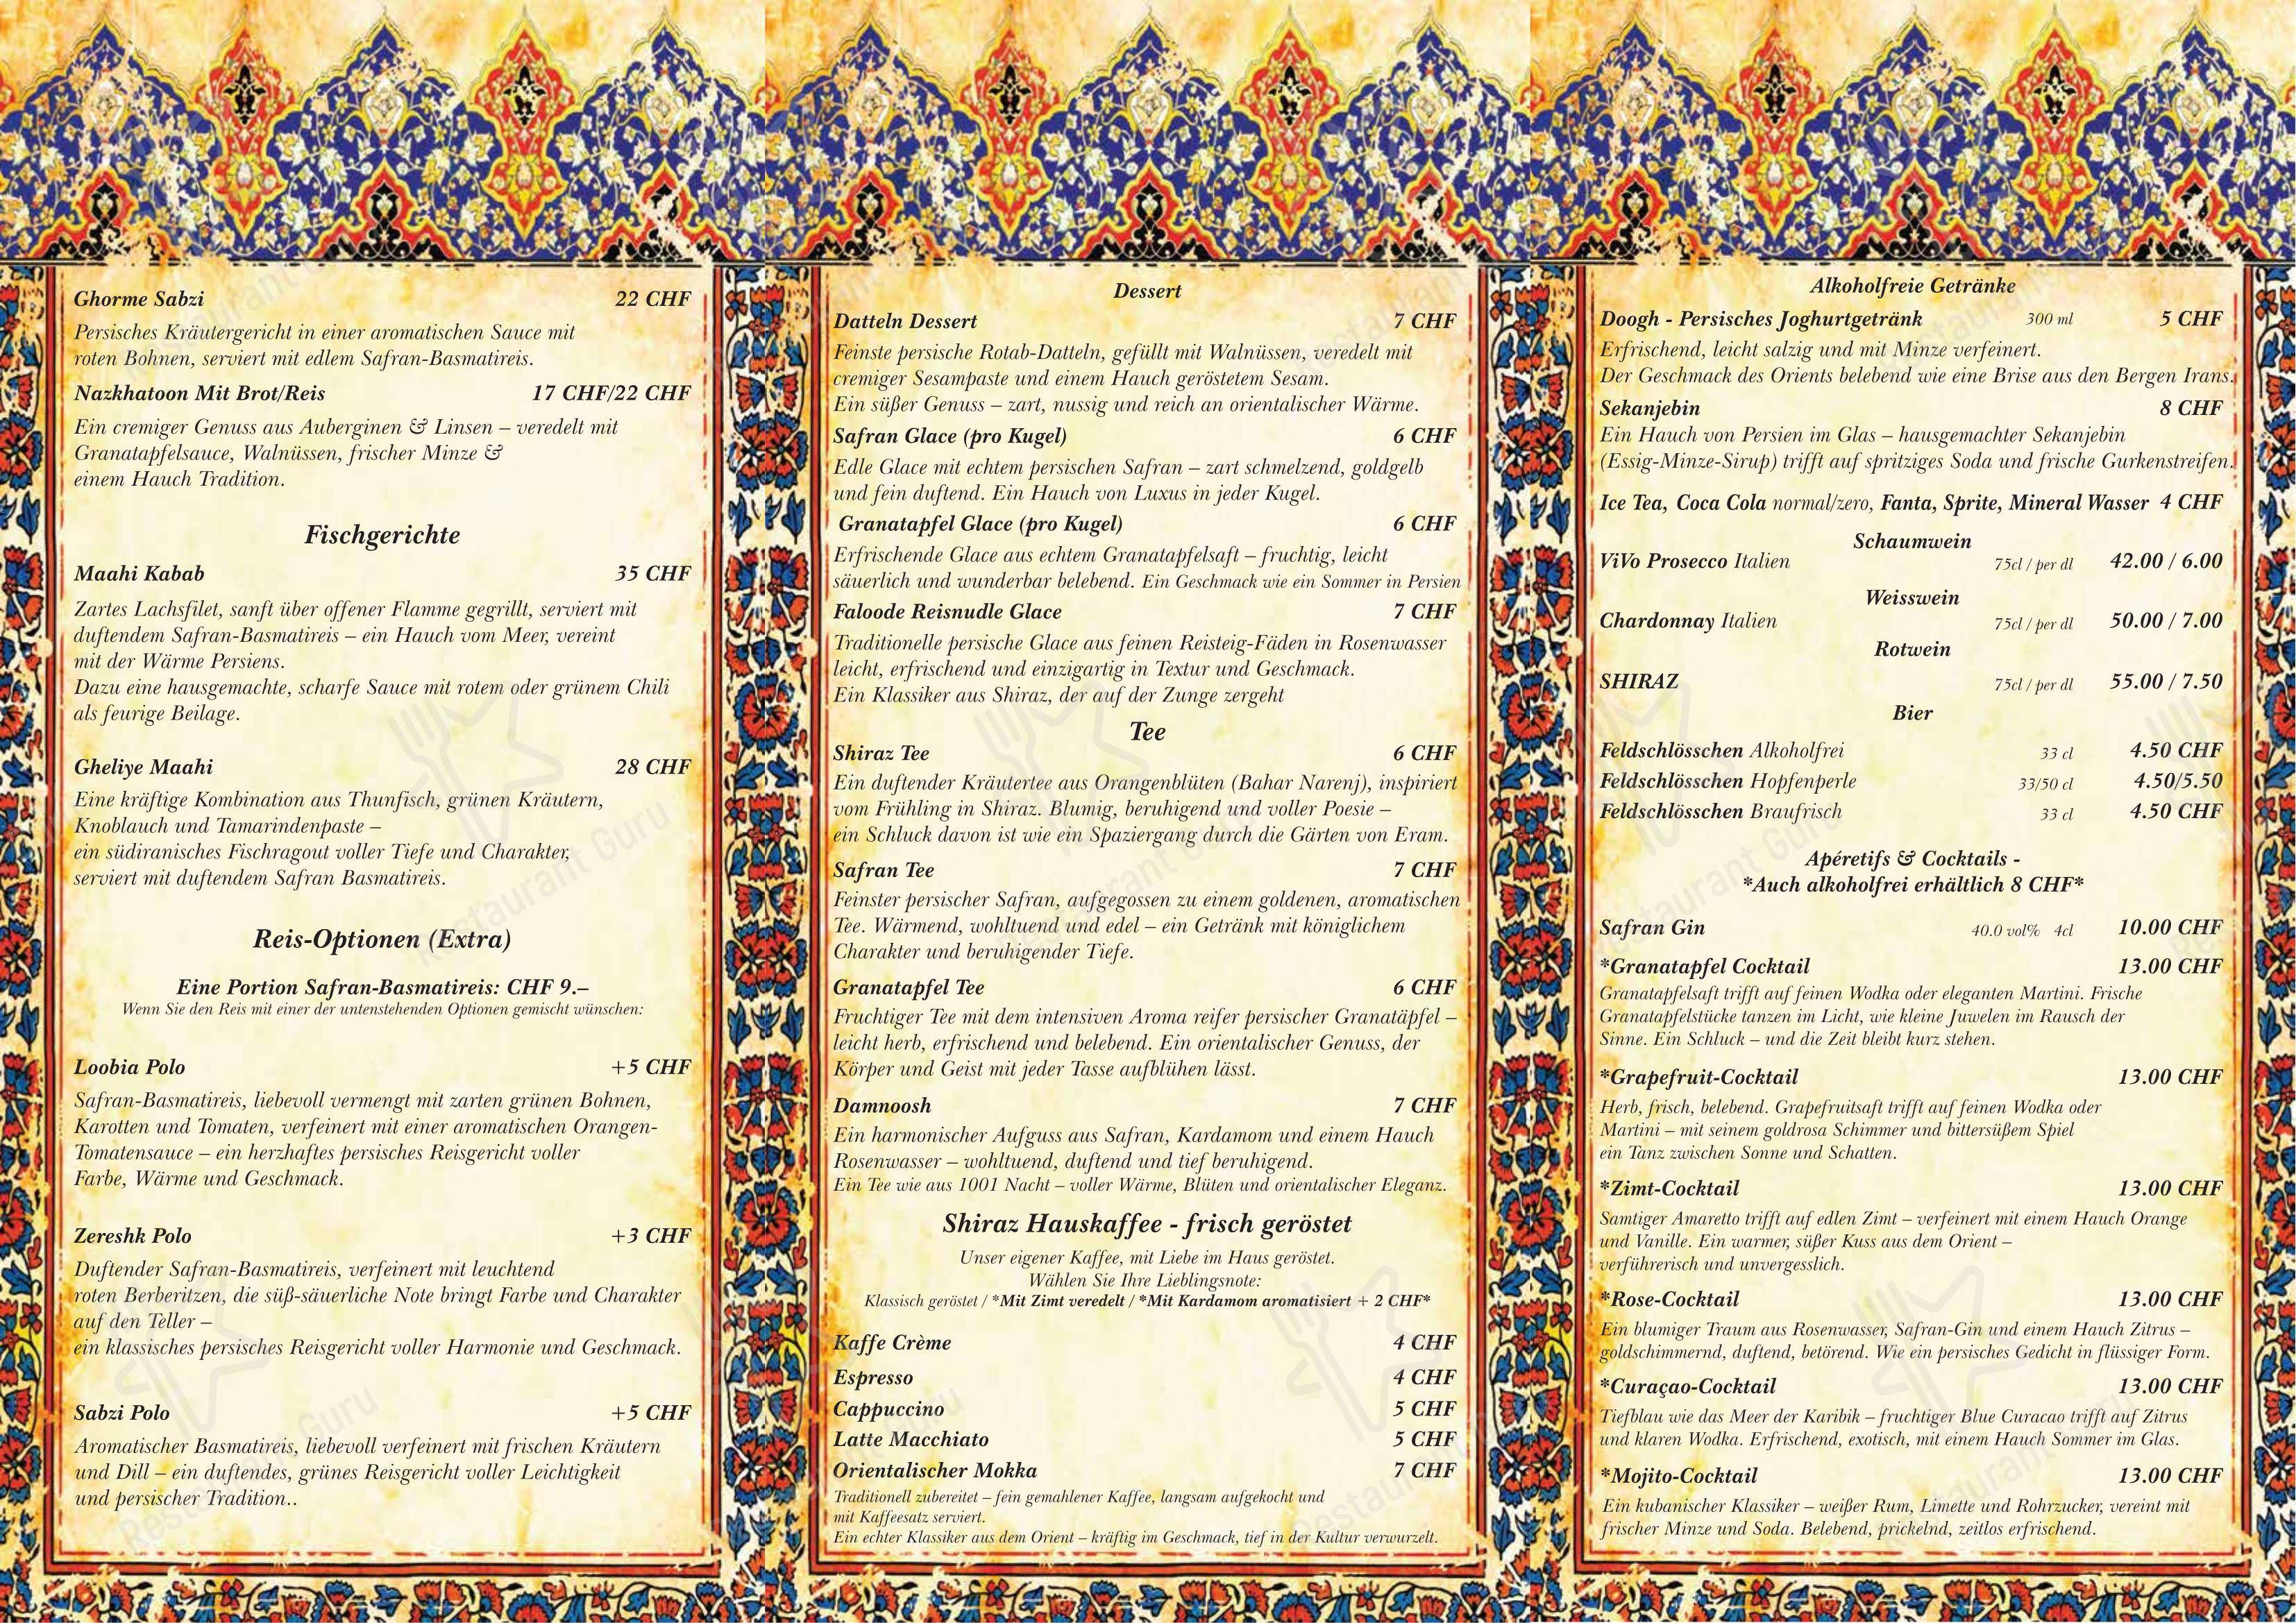 Ghorme Sabzi 22 CHF
Persisches Kräutergericht in einer aromatischen Sauce mit
roten Bohnen, serviert mit edlem Safran-Basmatireis.
Nazkhatoon Mit Brot/Reis 17 CHF/22 CHF
Ein cremiger Genuss aus Auberginen & Linsen – veredelt mit
Granatapfelsauce, Walnüssen, frischer Minze &
einem Hauch Tradition.
Fischgerichte
Maahi Kabab 35 CHF
Zartes Lachsfilet, sanft über offener Flamme gegrillt, serviert mit
duftendem Safran-Basmatireis – ein Hauch vom Meer, vereint
mit der Wärme Persiens.
Dazu eine hausgemachte, scharfe Sauce mit rotem oder grünem Chili
als feurige Beilage.
Gheliye Maahi 28 CHF
Eine kräftige Kombination aus Thunfisch, grünen Kräutern,
Knoblauch und Tamarindenpaste –
ein südiranisches Fischragout voller Tiefe und Charakter,
serviert mit duftendem Safran Basmatireis.
Reis-Optionen (Extra)
Eine Portion Safran-Basmatireis: CHF 9.–
Wenn Sie den Reis mit einer der untenstehenden Optionen gemischt wünschen:
Loobia Polo +5 CHF
Safran-Basmatireis, liebevoll vermengt mit zarten grünen Bohnen,
Karotten und Tomaten, verfeinert mit einer aromatischen Orangen-
Tomatensauce – ein herzhaftes persisches Reisgericht voller
Farbe, Wärme und Geschmack.
Zereshk Polo +3 CHF
Duftender Safran-Basmatireis, verfeinert mit leuchtend
roten Berberitzen, die süß-säuerliche Note bringt Farbe und Charakter
auf den Teller –
ein klassisches persisches Reisgericht voller Harmonie und Geschmack.
Sabzi Polo +5 CHF
Aromatischer Basmatireis, liebevoll verfeinert mit frischen Kräutern
und Dill – ein duftendes, grünes Reisgericht voller Leichtigkeit
und persischer Tradition..
Dessert
Datteln Dessert 7 CHF
Feinste persische Rotab-Datteln, gefüllt mit Walnüssen, veredelt mit
cremiger Sesampaste und einem Hauch geröstetem Sesam.
Ein süßer Genuss – zart, nussig und reich an orientalischer Wärme.
Safran Glace (pro Kugel) 6 CHF
Edle Glace mit echtem persischen Safran – zart schmelzend, goldgelb
und fein duftend. Ein Hauch von Luxus in jeder Kugel.
Granatapfel Glace (pro Kugel) 6 CHF
Erfrischende Glace aus echtem Granatapfelsaft – fruchtig, leicht
säuerlich und wunderbar belebend. Ein Geschmack wie ein Sommer in Persien
Faloode Reisnudle Glace 7 CHF
Traditionelle persische Glace aus feinen Reisteig-Fäden in Rosenwasser
leicht, erfrischend und einzigartig in Textur und Geschmack.
Ein Klassiker aus Shiraz, der auf der Zunge zergeht
Tee
Shiraz Tee 6 CHF
Ein duftender Kräutertee aus Orangenblüten (Bahar Narenj), inspiriert
vom Frühling in Shiraz. Blumig, beruhigend und voller Poesie –
ein Schluck davon ist wie ein Spaziergang durch die Gärten von Eram.
Safran Tee 7 CHF
Feinster persischer Safran, aufgegossen zu einem goldenen, aromatischen
Tee. Wärmend, wohltuend und edel – ein Getränk mit königlichem
Charakter und beruhigender Tiefe.
Granatapfel Tee 6 CHF
Fruchtiger Tee mit dem intensiven Aroma reifer persischer Granatäpfel –
leicht herb, erfrischend und belebend. Ein orientalischer Genuss, der
Körper und Geist mit jeder Tasse aufblühen lässt.
Damnoosh 7 CHF
Ein harmonischer Aufguss aus Safran, Kardamom und einem Hauch
Rosenwasser – wohltuend, duftend und tief beruhigend.
Ein Tee wie aus 1001 Nacht – voller Wärme, Blüten und orientalischer Eleganz.
Shiraz Hauskaffee - frisch geröstet
Unser eigener Kaffee, mit Liebe im Haus geröstet.
Wählen Sie Ihre Lieblingsnote:
Klassisch geröstet / *Mit Zimt veredelt / *Mit Kardamom aromatisiert + 2 CHF*
Kaffe Crème 4 CHF
Espresso 4 CHF
Cappuccino 5 CHF
Latte Macchiato 5 CHF
Orientalischer Mokka 7 CHF
Traditionell zubereitet – fein gemahlener Kaffee, langsam aufgekocht und
mit Kaffeesatz serviert.
Ein echter Klassiker aus dem Orient – kräftig im Geschmack, tief in der Kultur verwurzelt.
Alkoholfreie Getränke
Doogh - Persisches Joghurtgetränk 300 ml 5 CHF
Erfrischend, leicht salzig und mit Minze verfeinert.
Der Geschmack des Orients belebend wie eine Brise aus den Bergen Irans.
Sekanjebin 8 CHF
Ein Hauch von Persien im Glas – hausgemachter Sekanjebin
(Essig-Minze-Sirup) trifft auf spritziges Soda und frische Gurkenstreifen.
Ice Tea, Coca Cola normal/zero, Fanta, Sprite, Mineral Wasser 4 CHF
Schaumwein
ViVo Prosecco Italien 75cl / per dl 42.00 / 6.00
Weisswein
Chardonnay Italien 75cl / per dl 50.00 / 7.00
Rotwein
SHIRAZ 75cl / per dl 55.00 / 7.50
Bier
Feldschlösschen Alkoholfrei 33 cl 4.50 CHF
Feldschlösschen Hopfenperle 33/50 cl 4.50/5.50
Feldschlösschen Braufrisch 33 cl 4.50 CHF
Apéretifs & Cocktails -
*Auch alkoholfrei erhältlich 8 CHF*
Safran Gin 40.0 vol% 4cl 10.00 CHF
*Granatapfel Cocktail 13.00 CHF
Granatapfelsaft trifft auf feinen Wodka oder eleganten Martini. Frische
Granatapfelstücke tanzen im Licht, wie kleine Juwelen im Rausch der
Sinne. Ein Schluck – und die Zeit bleibt kurz stehen.
*Grapefruit-Cocktail 13.00 CHF
Herb, frisch, belebend. Grapefruitsaft trifft auf feinen Wodka oder
Martini – mit seinem goldrosa Schimmer und bittersüßem Spiel
ein Tanz zwischen Sonne und Schatten.
*Zimt-Cocktail 13.00 CHF
Samtiger Amaretto trifft auf edlen Zimt – verfeinert mit einem Hauch Orange
und Vanille. Ein warmer, süßer Kuss aus dem Orient –
verführerisch und unvergesslich.
*Rose-Cocktail 13.00 CHF
Ein blumiger Traum aus Rosenwasser, Safran-Gin und einem Hauch Zitrus –
goldschimmernd, duftend, betörend. Wie ein persisches Gedicht in flüssiger Form.
*Curaçao-Cocktail 13.00 CHF
Tiefblau wie das Meer der Karibik – fruchtiger Blue Curacao trifft auf Zitrus
und klaren Wodka. Erfrischend, exotisch, mit einem Hauch Sommer im Glas.
*Mojito-Cocktail 13.00 CHF
Ein kubanischer Klassiker – weißer Rum, Limette und Rohrzucker, vereint mit
frischer Minze und Soda. Belebend, prickelnd, zeitlos erfrischend.
Restaurant Guru